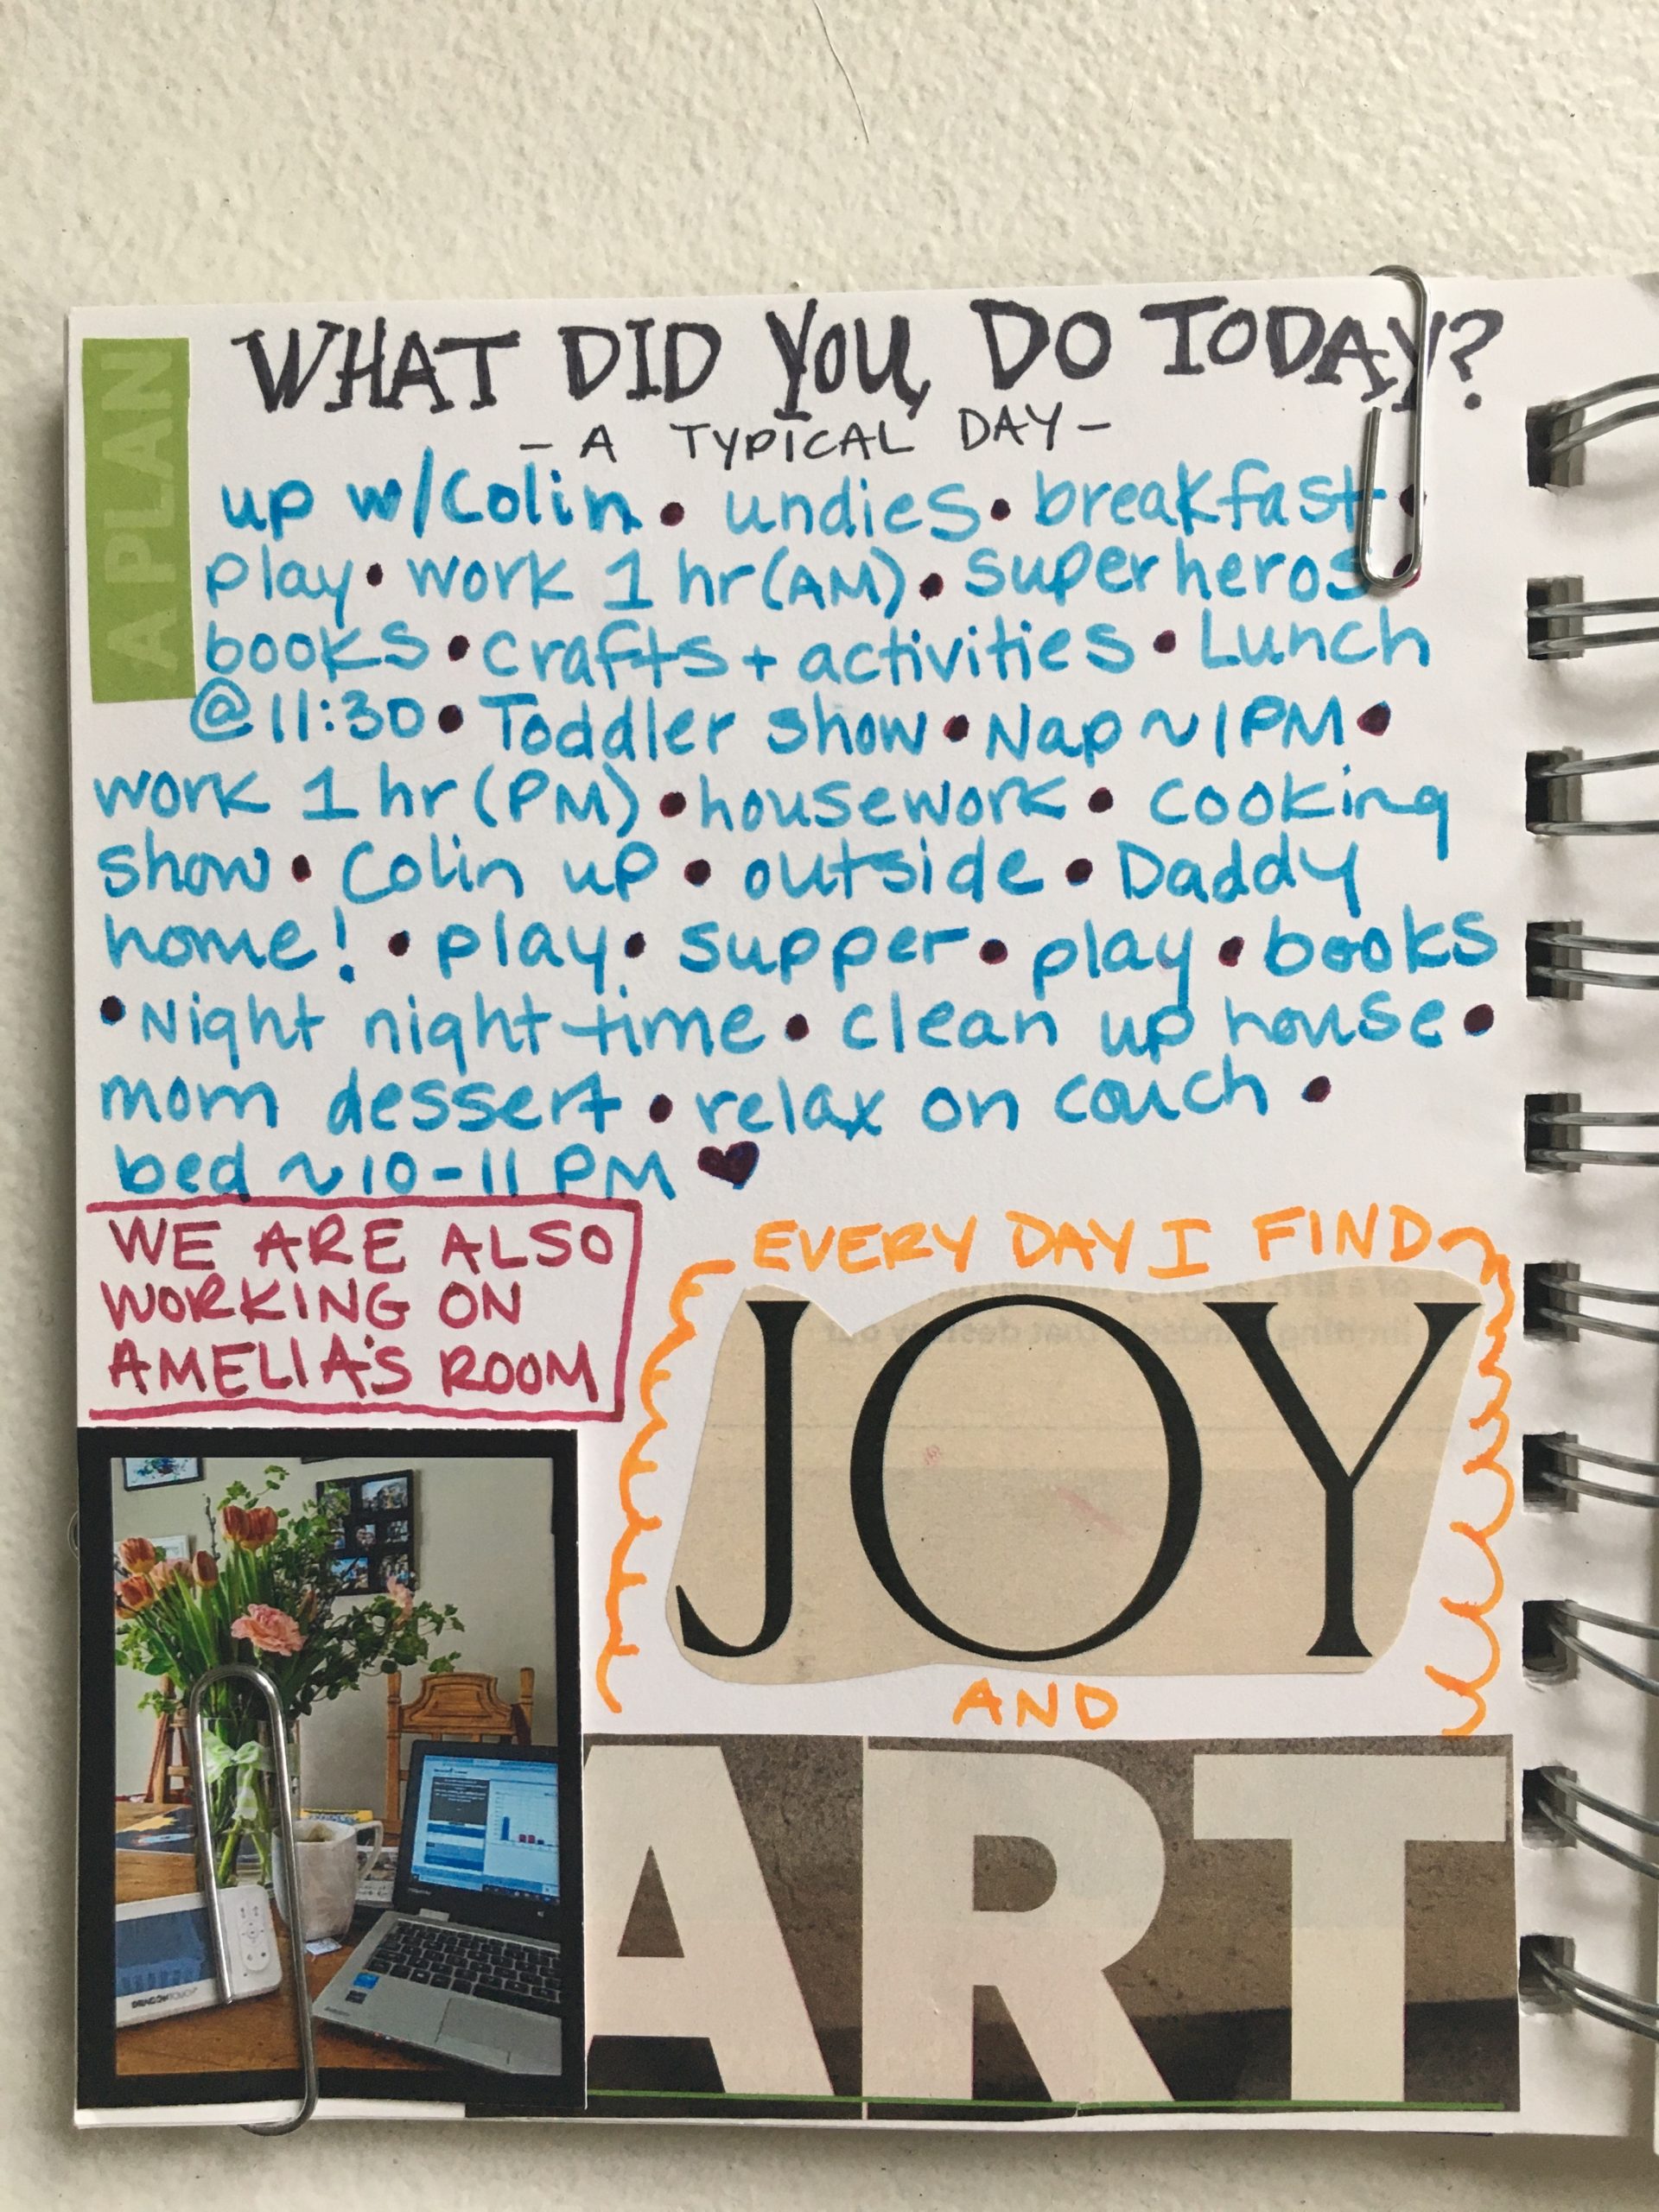 WHAT DID YOU DO TODAY?
- A TYPICAL DAY -
A PLAN
up w/Colin • undies • breakfast •
play • work 1 hr (AM) • superheros •
books • crafts + activities • Lunch
@ 11:30 • Toddler show • Nap ~ 1 PM •
work 1 hr (PM) • housework • cooking
show • Colin up • outside • Daddy
home! • play • supper • play • books
• Night night time • clean up house •
mom dessert • relax on couch •
bed ~ 10-11 PM ♥
WE ARE ALSO
WORKING ON
AMELIA'S ROOM
EVERY DAY I FIND
JOY
AND
ART